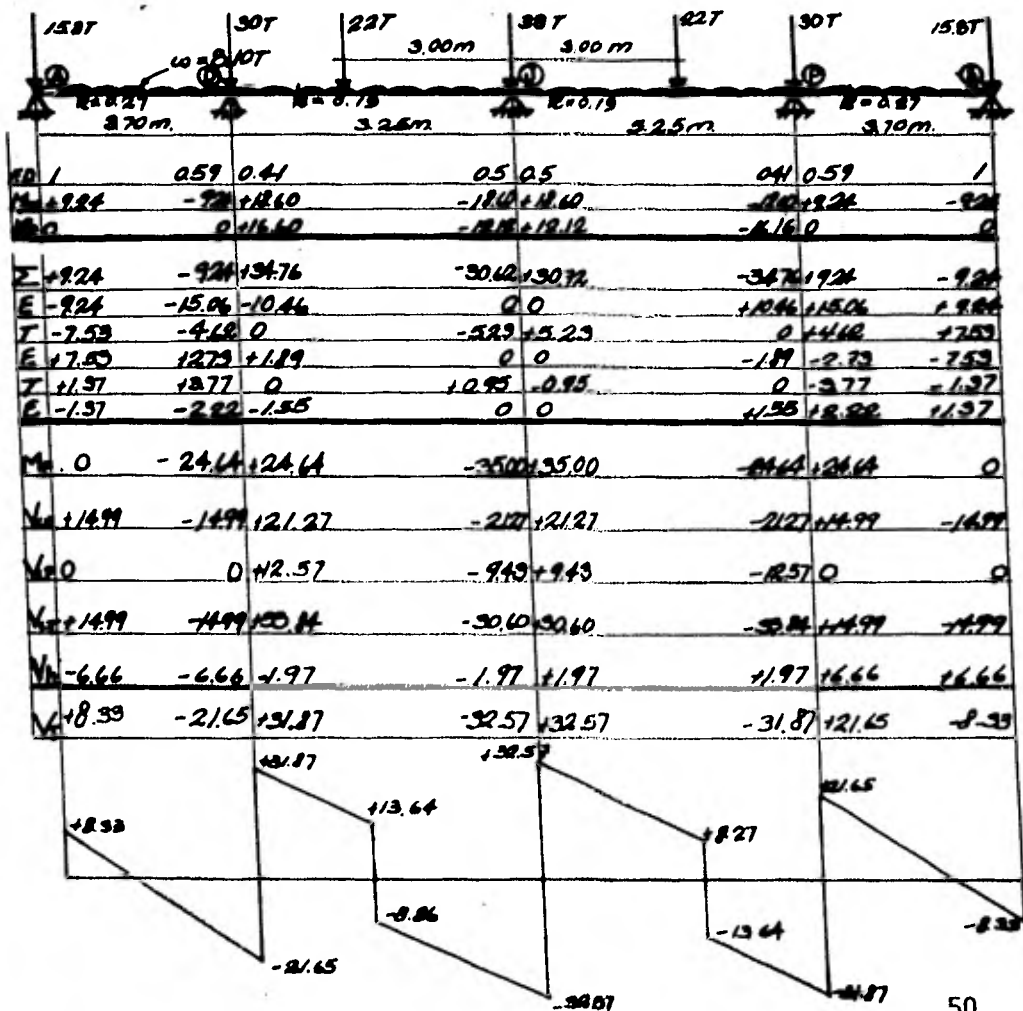 15.8T 30T 22T 38T 22T 30T 15.8T
3.00m 3.00m
w = 8.10T
A J P
R=0.27 R=0.19 R=0.19 R=0.27
3.70m. 5.25m 5.25m 3.70m.
1 0.59 0.41 0.5 0.5 0.41 0.59 1
+9.24 -9.24 +18.60 -18.60 +18.60 +9.24
0 0 +16.60 -12.12 +12.12 -16.16 0 0
Σ +9.24 -9.24 +34.76 -30.62 +30.72 -34.76 +9.24 -9.24
E -9.24 -15.06 -10.46 0 0 +10.46 +15.06 +9.24
T -7.53 -4.62 0 -5.23 +5.23 0 +4.62 +7.53
E +7.53 +2.73 +1.89 0 0 -1.89 -2.73 -7.53
T +1.37 +3.77 0 +0.95 -0.95 0 -3.77 -1.37
E -1.37 -2.22 -1.55 0 0 +1.55 +2.22 +1.37
0 -24.64 +24.64 -35.00 +35.00 -24.64 +24.64 0
+14.99 -14.99 +21.27 -21.27 +21.27 -21.27 +14.99 -14.99
0 0 +12.57 -9.43 +9.43 -12.57 0 0
+14.99 -14.99 +33.84 -30.60 +30.60 -33.84 +14.99 -14.99
Vh -6.66 -6.66 -1.97 -1.97 +1.97 +1.97 +6.66 +6.66
+8.33 -21.65 +31.87 -32.57 +32.57 -31.87 +21.65 -8.33
+31.87 +32.57
+21.65
+13.64
+8.33 +8.27
-8.86 -13.64 -8.33
-21.65
-32.57 -31.87
50